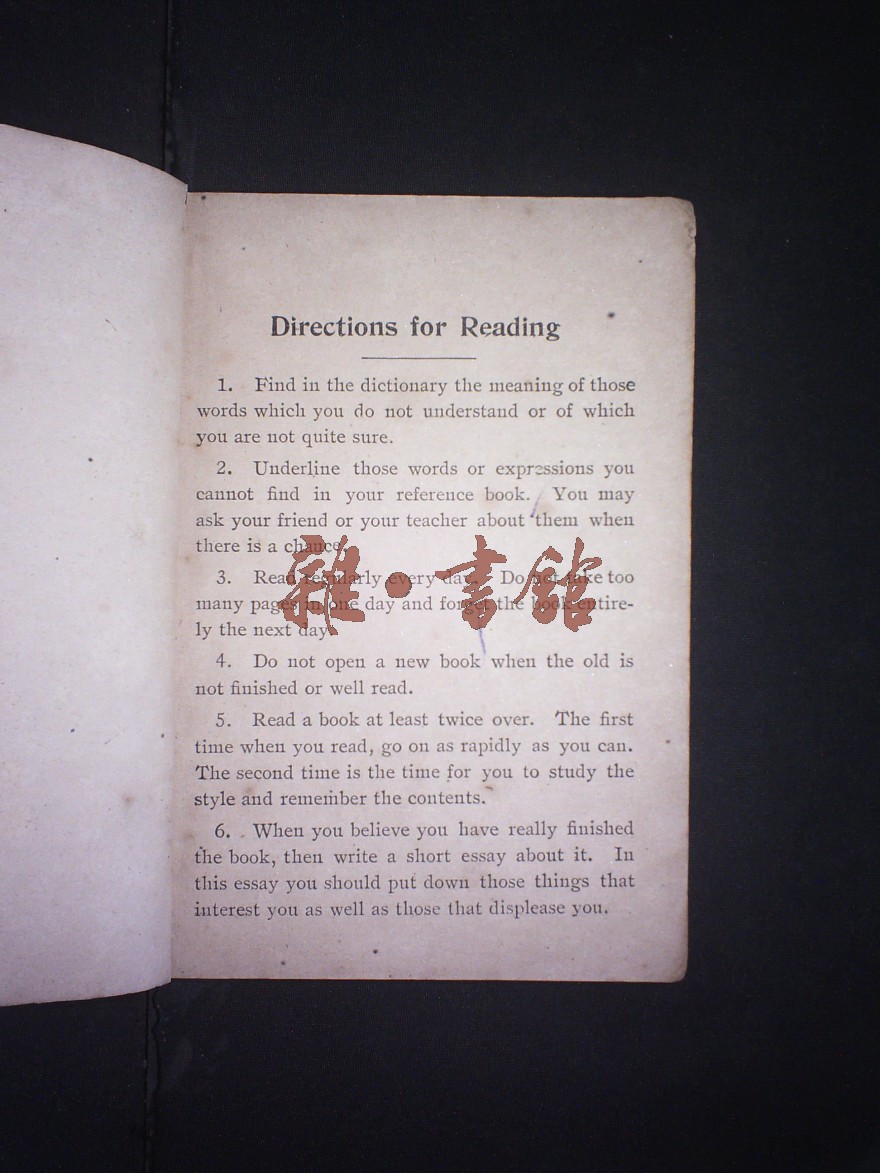 Directions for Reading
1. Find in the dictionary the meaning of those
words which you do not understand or of which
you are not quite sure.
2. Underline those words or expressions you
cannot find in your reference book. You may
ask your friend or your teacher about them when
there is a chance.
3. Read regularly every day. Do not take too
many pages in one day and forget the book entire-
ly the next day.
雜·書館
4. Do not open a new book when the old is
not finished or well read.
5. Read a book at least twice over. The first
time when you read, go on as rapidly as you can.
The second time is the time for you to study the
style and remember the contents.
6. When you believe you have really finished
the book, then write a short essay about it. In
this essay you should put down those things that
interest you as well as those that displease you.